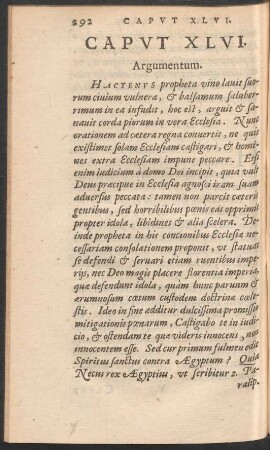 292 CAPVT XLVI.
CAPVT XLVI.
Argumentum.
HACTENVS propheta vino lauit suo-
rum ciuium vulnera, & balsamum saluber-
rimum in ea infudit, hoc est, arguit & sa-
nauit corda piorum in vera Ecclesia. Nunc
orationem ad cætera regna conuertit, ne quis
existimet solam Ecclesiam castigari, & homi-
nes extra Ecclesiam impune peccare. Etsi
enim iudicium à domo Dei incipit, quia vult
Deus præcipue in Ecclesia agnosci iram suam
aduersus peccata: tamen non parcit cæteris
gentibus, sed horribilibus pœnis eas opprimit
propter idola, libidines & alia scelera. De-
inde propheta in his concionibus Ecclesiæ ne-
cessariam consolationem proponit, vt statuat
se defendi & seruari etiam ruentibus impe-
rijs, nec Deo magis placere florentia imperia,
quæ defendunt idola, quàm hunc paruum &
ærumnosum cœtum custodem doctrinæ cœle-
stis. Ideo in fine additur dulcissima promissio
mitigationis pœnarum, Castigabo te in iudi-
cio, & ostendam te quæ videris innocens, non
innocentem esse. Sed cur primum fulmen edit
Spiritus sanctus contra Ægyptum? Quia
Necus rex Ægyptius, vt scribitur 2. Pa-
ralip.